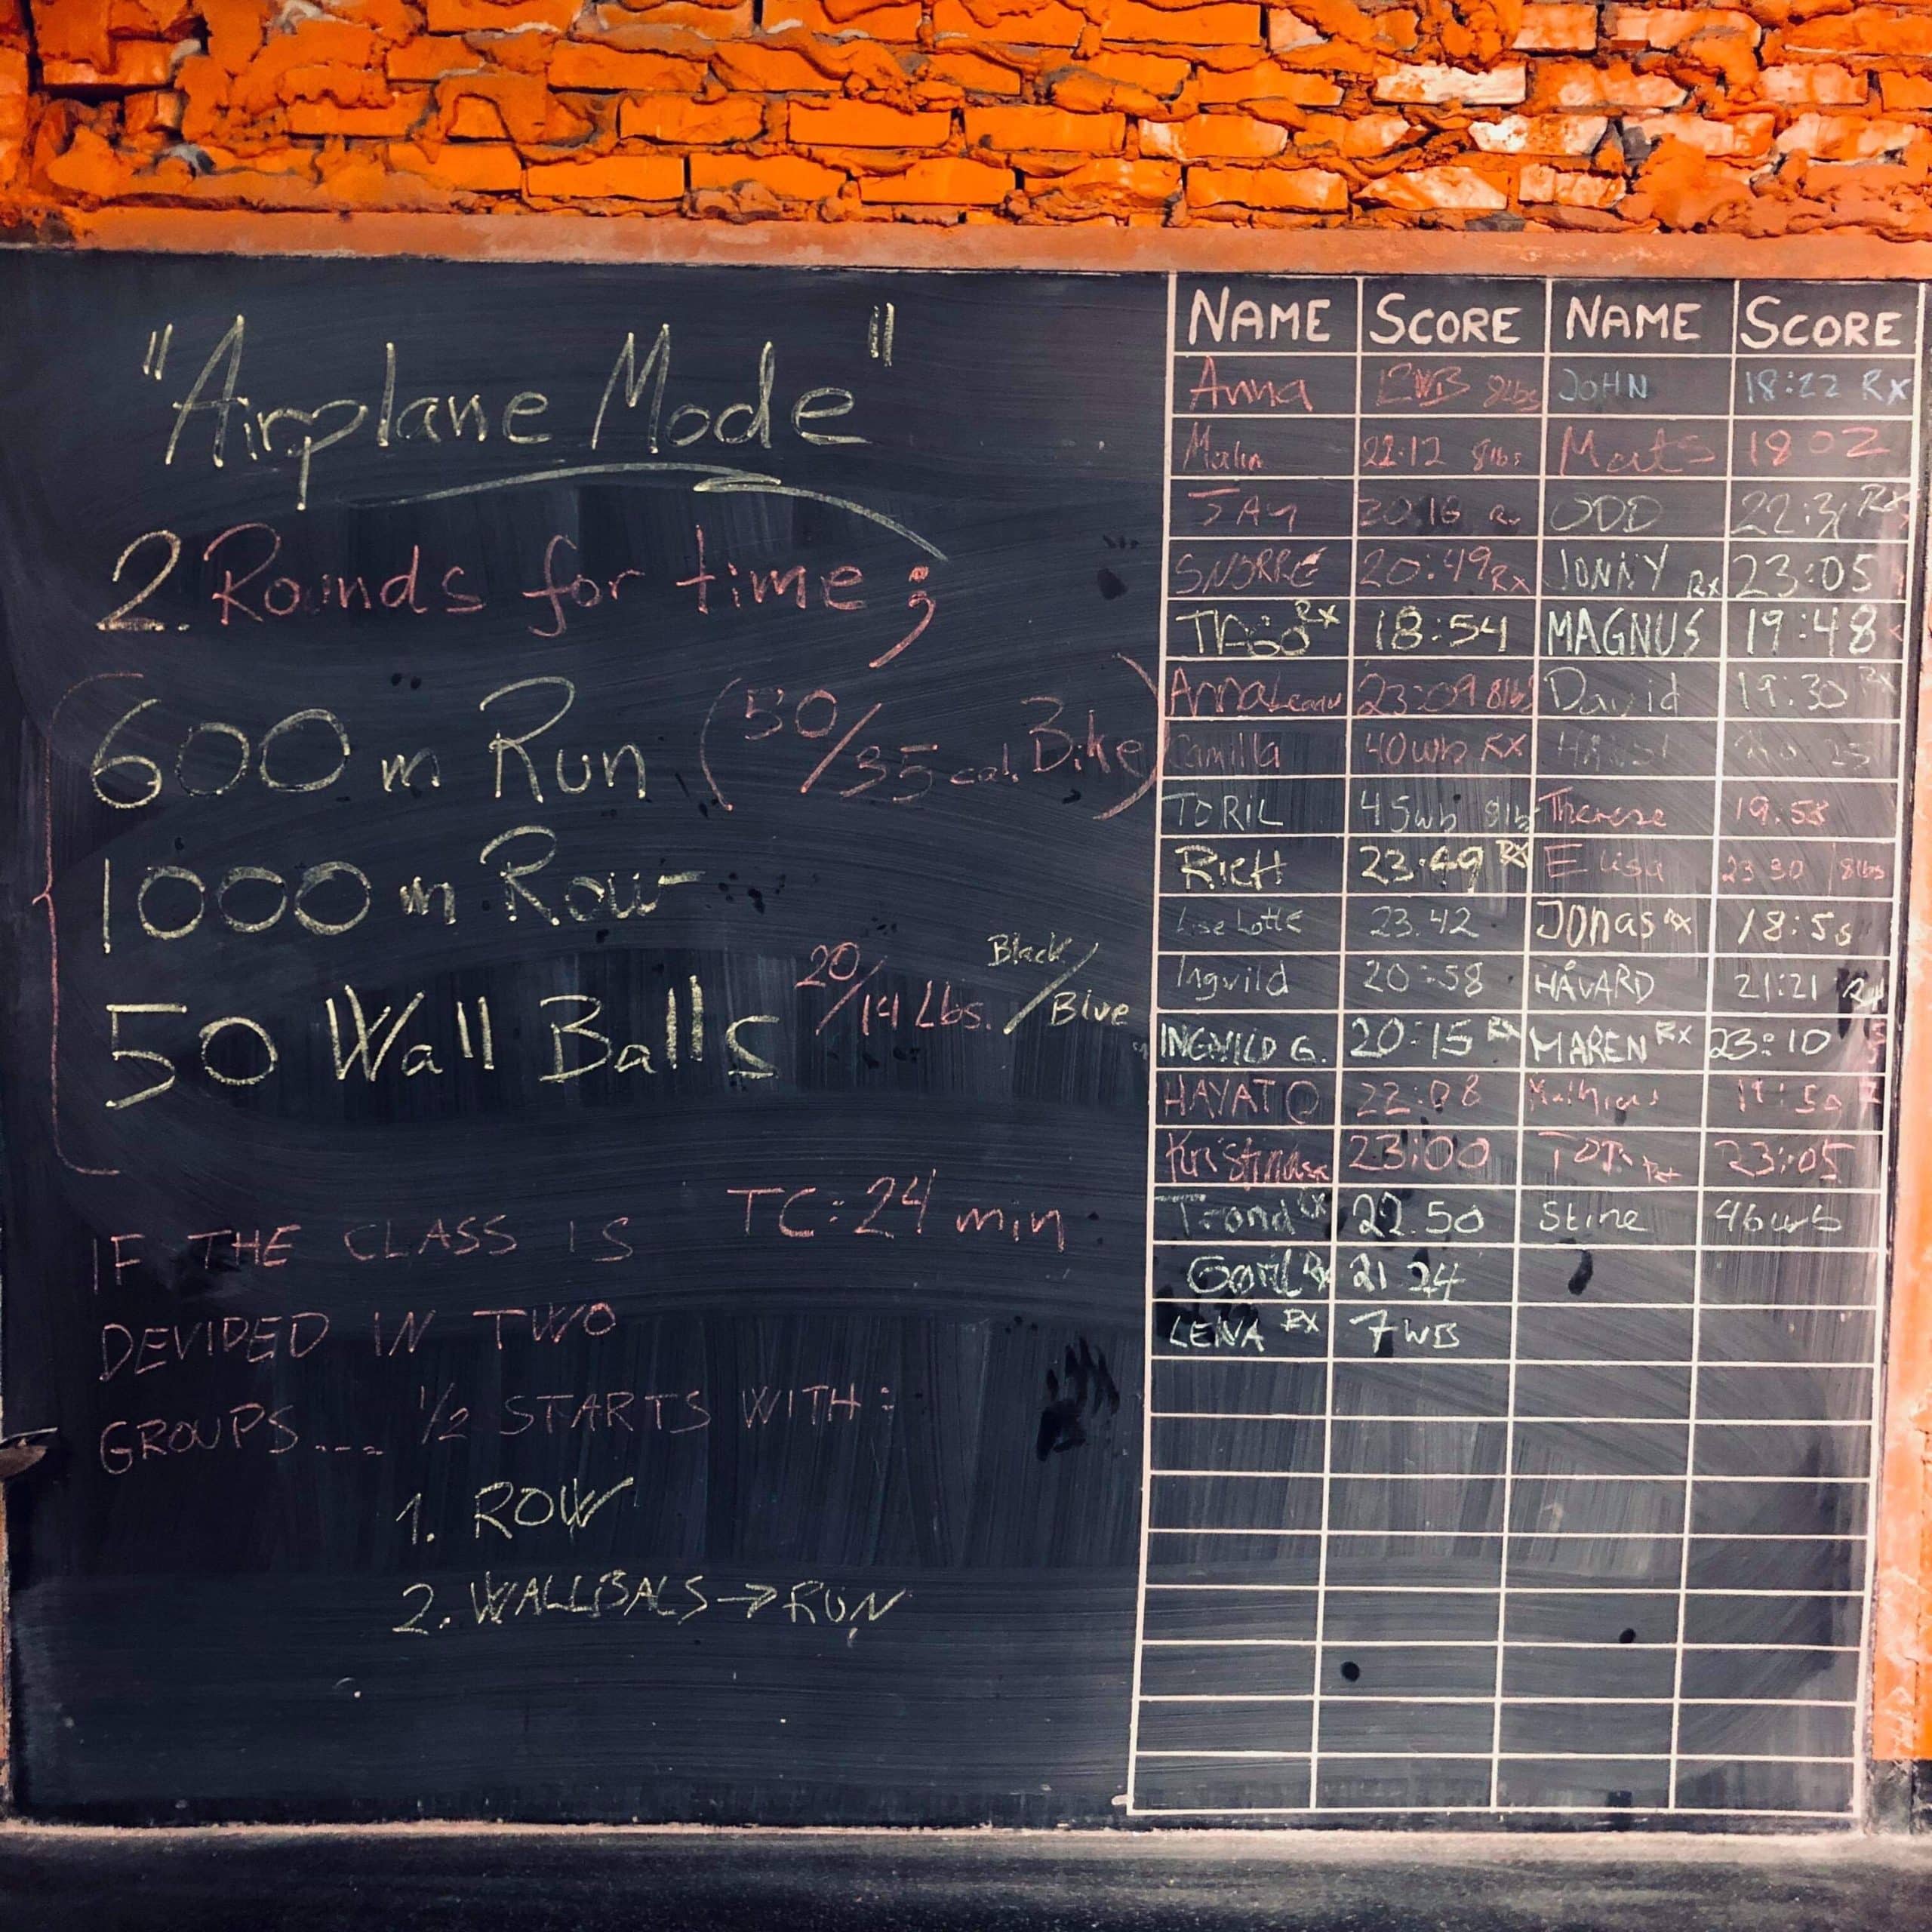 "Airplane Mode"
2 Rounds for time;
600 m Run (50/35 cal. Bike)
1000 m Row
50 Wall Balls 20/14 Lbs. Black/Blue
TC: 24 min
IF THE CLASS IS
DEVIDED IN TWO
GROUPS... 1/2 STARTS WITH:
1. ROW
2. WALLBALS → RUN
NAME SCORE NAME SCORE
Anna 8lbs JOHN 18:22 Rx
Malin 22:12 8lbs Mats 18 02
JAY 20 16 Rx ODD Rx
SNORRE 20:49 Rx JONNY Rx 23:05
TIAGO Rx 18:54 MAGNUS 19:48
Anna 23:09 8lbs David 19:30 Rx
Camilla 40wb RX
TORIL 45wb 8lb Therese 19.58
23:49 RX Elisa 23 30 /8lbs
Lise Lotte 23.42 Jonas Rx
Ingvild 20:58 HÅVARD 21:21
INGVILD G. 20:15 Rx MAREN RX 23:10
HAYATO 22:08 Mathias
Kristina 23:00 23:05
Trond Rx 22.50 Stine 46wb
Rx 21 24
LENA RX 7 WB